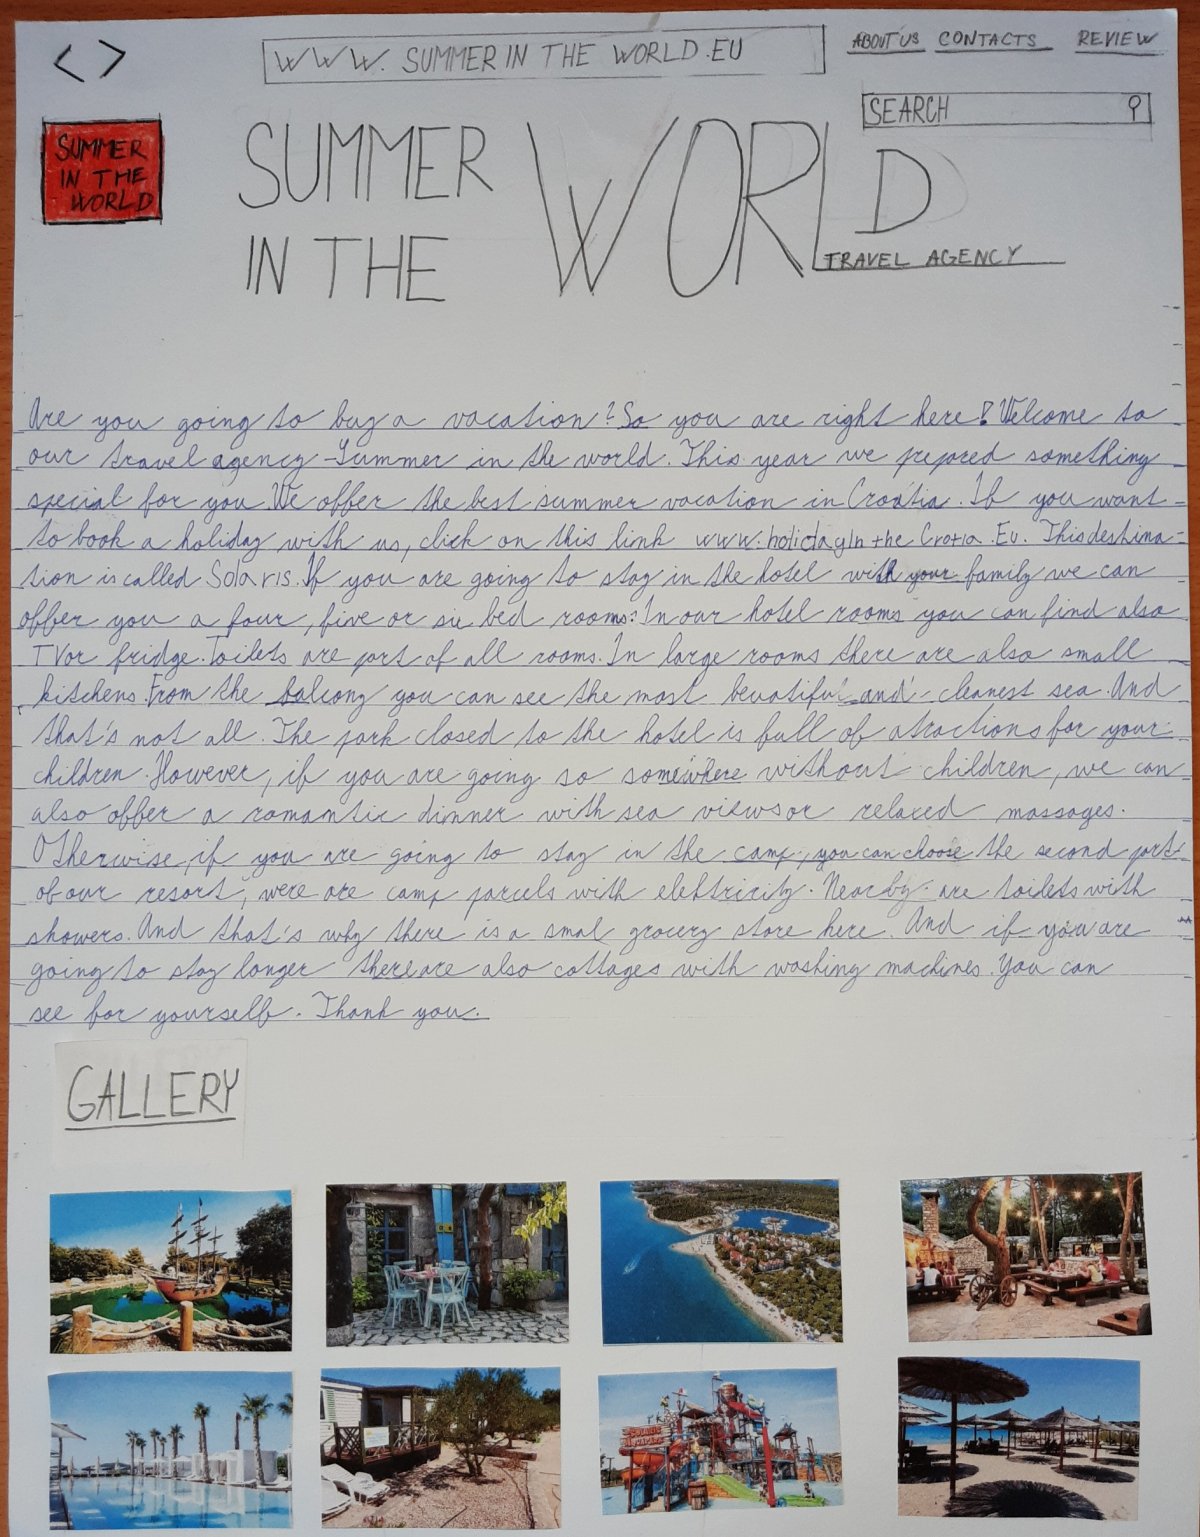 < >
WWW. SUMMER IN THE WORLD.EU
ABOUT US CONTACTS REVIEW
SEARCH
SUMMER
IN THE
WORLD
SUMMER
IN THE
WORLD
TRAVEL AGENCY
Are you going to buy a vacation? So you are right here! Welcome to
our travel agency - Summer in the world. This year we prepared something
special for you. We offer the best summer vacation in Croatia. If you want
to book a holiday with us, click on this link www.holidayIn the Crotia.Eu. This destina-
tion is called Solaris. If you are going to stay in the hotel with your family we can
offer you a four, five or six bed rooms. In our hotel rooms you can find also
TV or fridge. Toilets are part of all rooms. In large rooms there are also small
kitchens. From the balcony you can see the most beuatiful and cleanest sea. And
that's not all. The park closed to the hotel is full of atractions for your
children. However, if you are going so somewhere without children, we can
also offer a romantic dinner with sea views or relaxed massages.
Otherwise, if you are going to stay in the camp, you can choose the second part
of our resort, were are camp parcels with elektricity. Nearby are toilets with
showers. And that's why there is a smal grocery store here. And if you are
going to stay longer there are also cottages with washing machines. You can
see for yourself. Thank you.
GALLERY